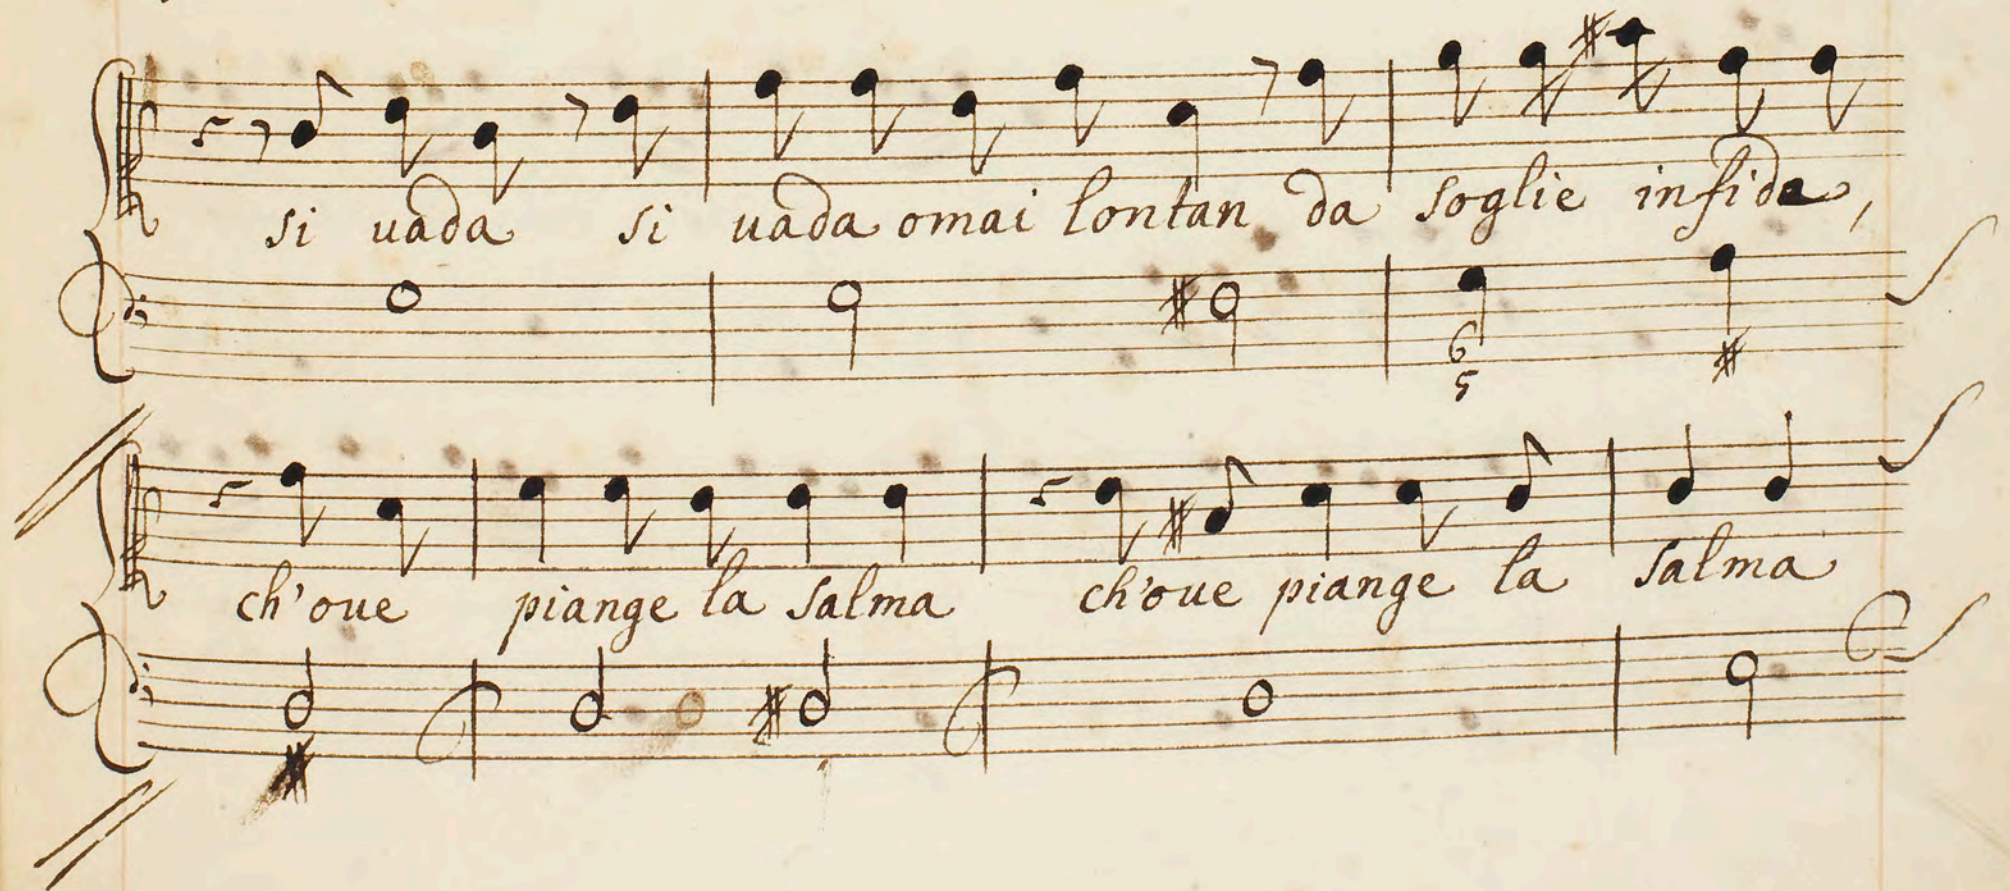 si uada si uada omai lontan da soglie infida,
6
5
ch'oue piange la salma ch'oue piange la salma